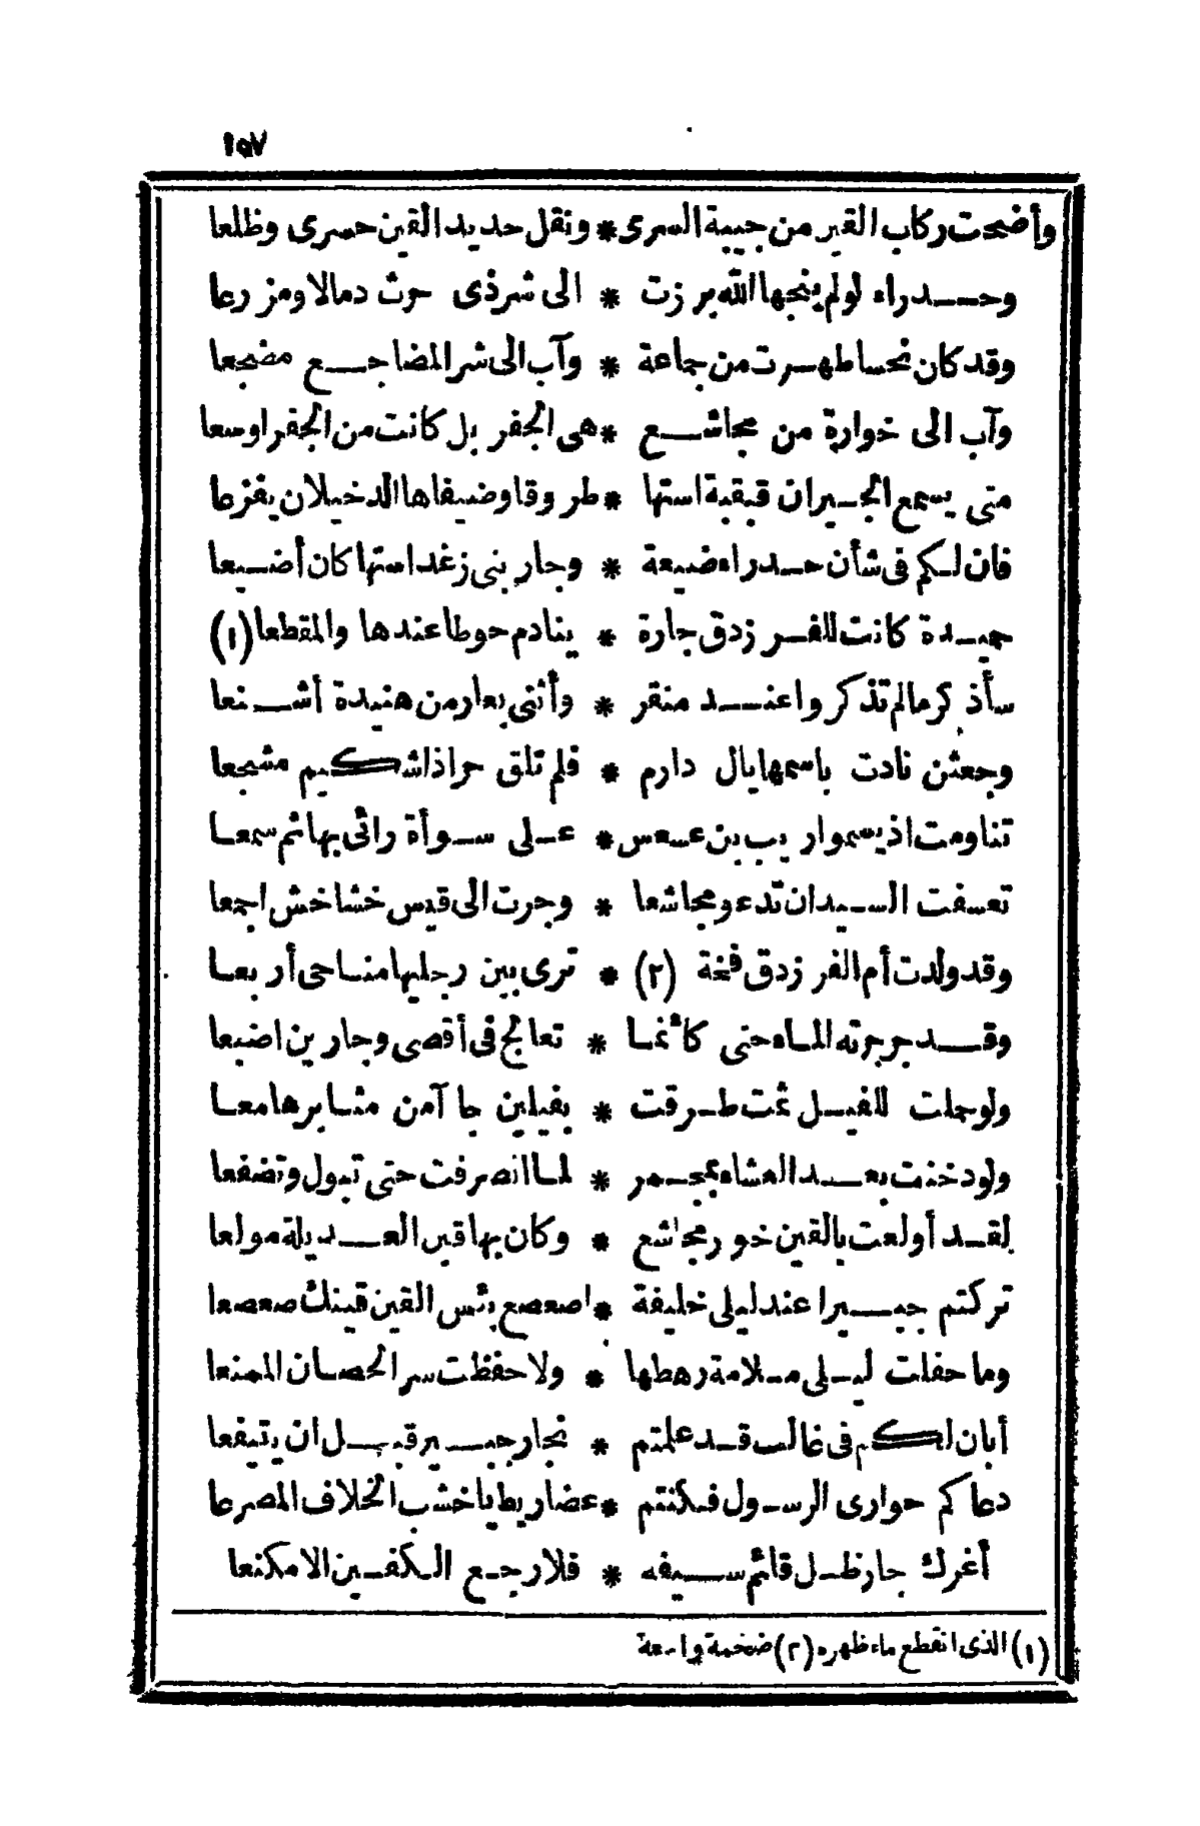 ١٥٧
وأضحت ركاب القين من خيبة السرى * ونقل حديد القين حسرى وظلعا
وحدراء لو لم ينجها الله برزت * الى شر ذى حرث دمالا ومزرعا
وقد كان نجسا طهرت من جماعة * وآب الى شر المضاجع مضجعا
وآب الى خوارة من مجاشع * هى الجفر بل كانت من الجفر اوسعا
متى يسمع الجيران قبقبة استها * طروقا وضيفاها الدخيلان يفزعا
فان لكم فى شأن حدراء ضيعة * وجار بنى زغد استها كان أضيعا
حميدة كانت للفرزدق جارة * ينادم حوطا عندها والمقطعا (١)
سأذكر مالم تذكروا عند منقر * وأثنى بعار من هنيدة أشنعا
وجعثن نادت باسمها يال دارم * فلم تلق حرا ذا شكيم مشجعا
تناومت اذ يسموا ريب بن عسعس * على سوأة رائى بها ثم سمعا
تعسفت السيدان تدعو مجاشعا * وجرت الى قيس خشاخش اجمعا
وقد ولدت أم الفرزدق فخة (٢) * ترى بين رجليها مناحى أربعا
وقد جرجرته الماء حتى كأنما * تعالج فى أقصى وجارين اضبعا
ولو حملت للفيل ثمت طرقت * بفيلين جا آمن مثابرها معا
ولو دخنت بعد العشاء بمجمر * لما انصرفت حتى تبول وتضفعا
لقد أولعت بالقين خور مجاشع * وكان بها قين العديلة مولعا
تركتم جبيرا عند ليلى خليفة * اصعصع بئس القين قينك صعصعا
وما حفلت ليلى ملامة رهطها * ولا حفظت سر الحصان الممنعا
أبان لكم فى غالب قد علمتم * نجار جبير قبل ان يتيفعا
دعاكم حوارى الرسول فكنتم * عضاريط يا خشب الخلاف المصرعا
أغرك جار ظل قائم سيفه * فلا رجع الكفين الا مكنعا
(١) الذى انقطع ماء ظهره (٢) ضخمة واسعة